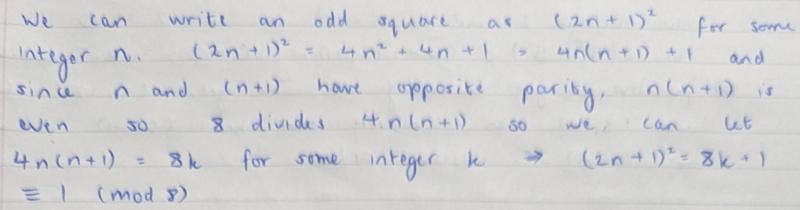 We can write an odd square as (2n+1)² for some
integer n. (2n+1)² = 4n² + 4n + 1 = 4n(n+1) + 1 and
since n and (n+1) have opposite parity, n(n+1) is
even so 8 divides 4n(n+1) so we can let
4n(n+1) = 8k for some integer k ⇒ (2n+1)² = 8k+1
≡ 1 (mod 8)